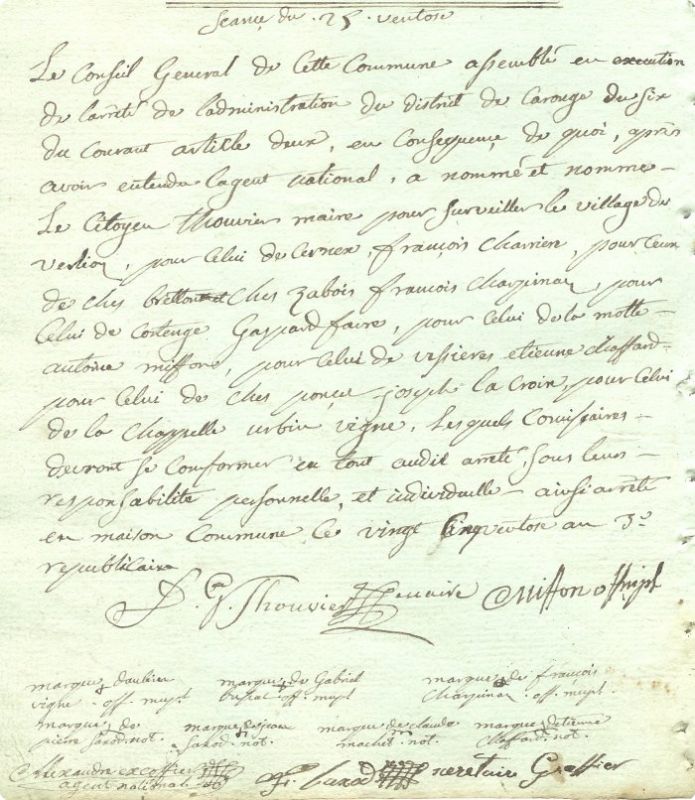 Seance du 25 ventose
Le Conseil General de Cette Commune assemblé en execution
de l'arrêté de l'administration du district de Carouge du six
du Courant article deux, en Consequence de quoi, après
avoir entendu l'agent national, a nommé et nomme
Le Citoyen Thouvier maire pour surveiller le village du
pour Celui de Cernex, françois Charriere, pour Ceux
de Ches et Ches Zabois françois Charpinaz, pour
Celui de Gaspard faure, pour Celui de la motte
antoine miffon, pour Celui de etienne Chaffard
pour Celui de Ches joseph la Croix, pour Celui
de la Chappelle urbin vigne, Lesquels Comissaires
devront se Conformer en tout audit arrêté, sous leurs
responsabilité personnelle, et individuelle ainsi arrêté
en maison Commune Ce vingt Cinq ventose an 3e
republicain
Thouvier maire Miffon off mpl
marque
marque de Gabriel
marque de françois
vigne off. mupl
off. mupl
Charpinaz off. mupl.
marque de
marque
marque de claude
marque detienne
pierre not.
not.
not.
Chaffard not.
Alexandre excoffier
secretaire Greffier
agent national